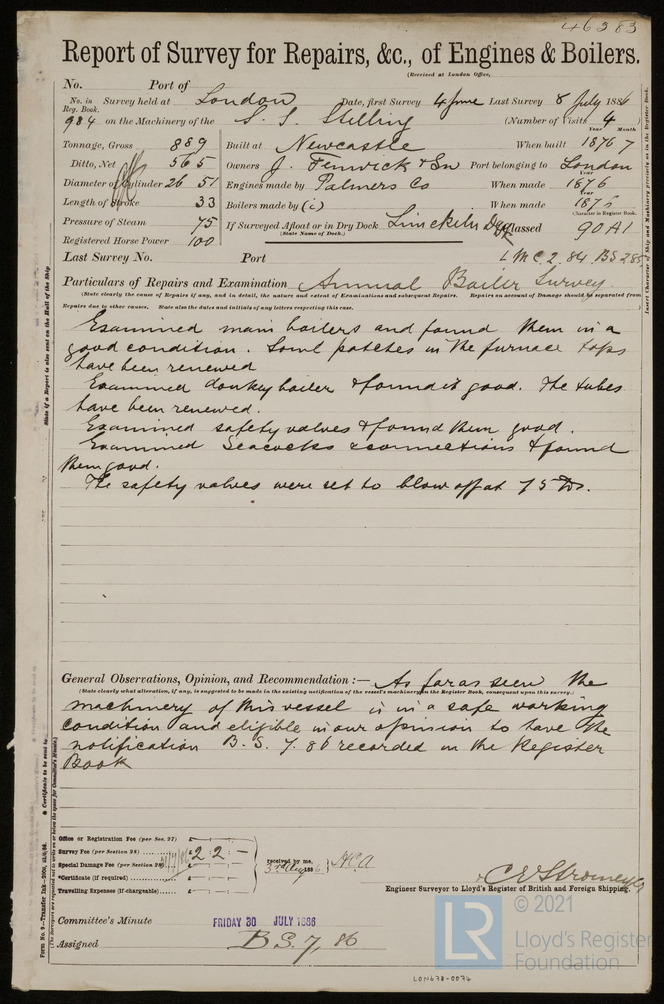 46383
Report of Survey for Repairs, &c., of Engines & Boilers.
(Received at London Office,
No. Port of
No. in Reg. Book. Survey held at London Date, first Survey 4 June Last Survey 8 July 1886
984 on the Machinery of the S. S. Stelling (Number of Visits 4
Year Month
Tonnage, Gross 889 Built at Newcastle When built 1876 7
Ditto, Net 565 Owners J. Fenwick & Sn Port belonging to London
Year
Diameter of Cylinder 26 51 Engines made by Palmers Co When made 1876
Year
Length of Stroke 33 Boilers made by (i) When made 1876
Character in Register Book.
Pressure of Steam 75 If Surveyed Afloat or in Dry Dock Limekiln Dock Classed 90A1
(State Name of Dock.)
Registered Horse Power 100
Last Survey No. Port L M C. 2. 84. B S 2.85
Particulars of Repairs and Examination Annual Boiler Survey.
(State clearly the cause of Repairs if any, and in detail, the nature and extent of Examinations and subsequent Repairs. Repairs on account of Damage should be separated from
Repairs due to other causes. State also the dates and initials of any letters respecting this case. )
Examined main boilers and found them in a
good condition. Some patches in the furnace tops
have been renewed
Examined donkey boiler & found it good. The tubes
have been renewed.
Examined safety valves & found them good.
Examined Seacocks & connections & found
them good.
The safety valves were set to blow off at 75 lbs.
General Observations, Opinion, and Recommendation :— As far as seen the
(State clearly what alteration, if any, is suggested to be made in the existing notification of the vessel's machinery in the Register Book, consequent upon this survey.)
machinery of this vessel is in a safe working
condition and eligible in our opinion to have the
notification B. S. 7. 86 recorded in the Register
Book
Office or Registration Fee (per Sec. 27)
Survey Fee (per Section 28) £ 2 : 2 : –
Special Damage Fee (per Section 28)
*Certificate (if required)
Travelling Expenses (if chargeable)
received by me,
C E Stromeyer
Engineer Surveyor to Lloyd's Register of British and Foreign Shipping.
Committee's Minute FRIDAY 30 JULY 1886
Assigned B S. 7, 86
State if a Report is also sent on the Hull of the Ship
* Certificate to be sent to
(The Surveyors are requested not to write on or below the space for Committee's Minute.)
Insert Character of Ship and Machinery precisely as in the Register Book.
LR
© 2021
Lloyd's Register
Foundation
LON678-0076